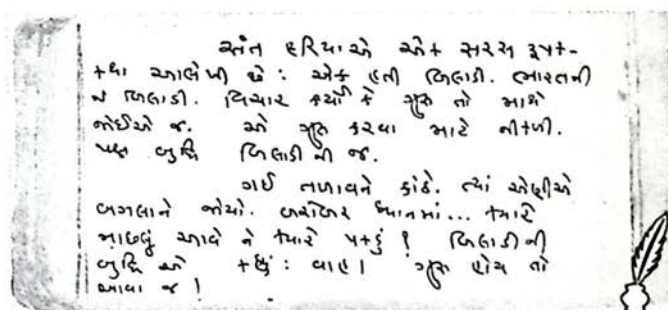 સંત હરિયાએ એક સરસ રૂપક-
કથા આલેખી છે : એક હતી બિલાડી. ભારતની
જ બિલાડી. વિચાર કર્યો કે ગુરુ તો માથે
જોઈએ જ. એ ગુરુ કરવા માટે નીકળી.
પણ બુદ્ધિ બિલાડી ની જ.
ગઈ તળાવને કાંઠે. ત્યાં એણીએ
બગલાને જોયો. બરોબર ધ્યાનમાં... ક્યારે
માછલું આવે ને ક્યારે પકડું ! બિલાડીની
બુદ્ધિ એ કહ્યું : વાહ ! ગુરુ હોય તો
આવા જ !